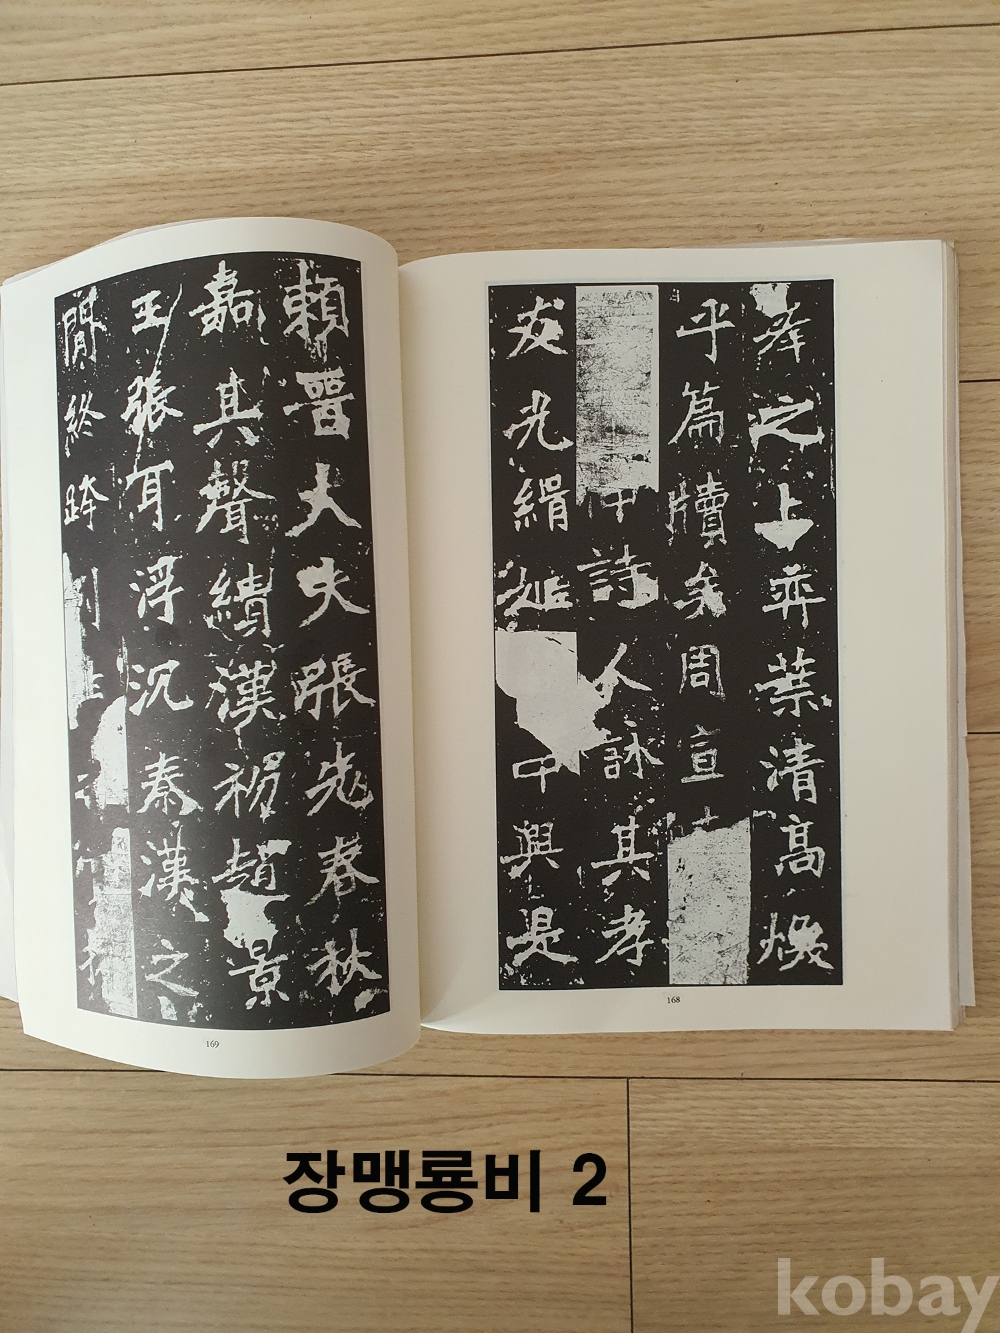 峯之上弈葉清高煥
乎篇牘矣周宣
詩人詠其孝
友光緝中興是
168
賴晉大夫張老春秋
嘉其聲績漢初趙景
王張耳浮沉秦漢之
閒終跨列土
169
장맹룡비 2
kobay